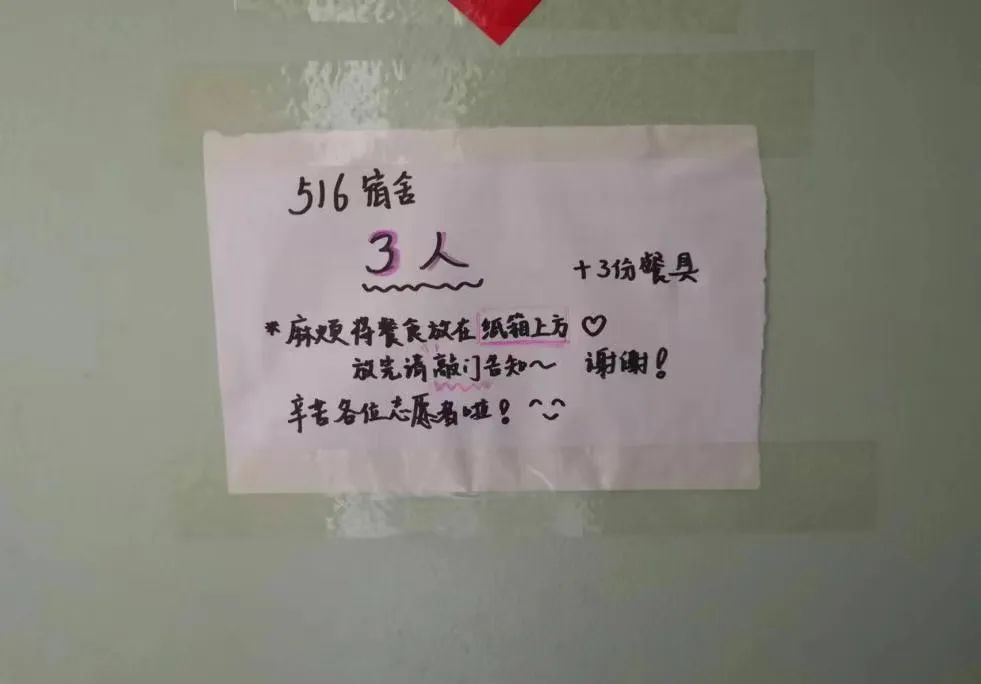 516 宿舍
3人
+3份餐具
*麻烦将餐食放在纸箱上方♡
放完请敲门告知～ 谢谢!
辛苦各位志愿者啦! ^_^